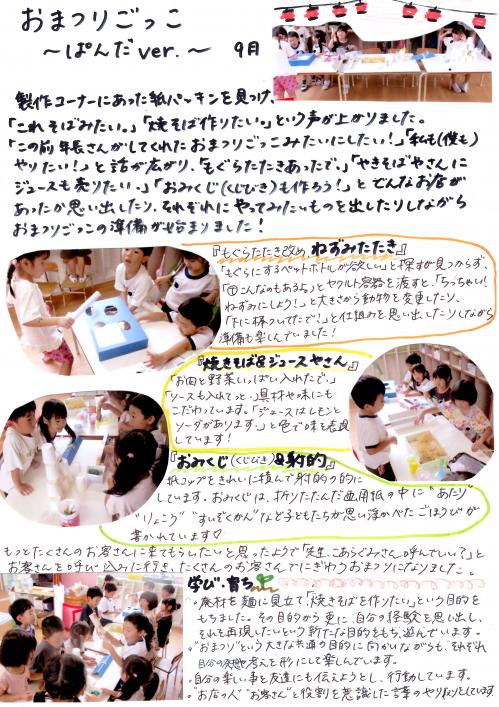 おまつりごっこ
～ぱんだver.～ 9月
製作コーナーにあった紙パッキンを見つけ、
「これそばみたい。」「焼そば作りたい。」という声が上がりました。
「この前年長さんがしてくれたおまつりごっこみたいにしたい！」「私も(僕も)
やりたい！」と話が広がり、「もぐらたたきあったで。」「やきそばやさんに
ジュースも売りたい。」「おみくじ(くじびき)も作ろう！」とどんなお店が
あったか思い出したり、それぞれにやってみたいものを出したりしながら
おまつりごっこの準備が始まりました！
『もぐらたたき改め ねずみたたき』
「もぐらにするペットボトルが欲しい」と探すが見つからず、
「こんなのもあるよ」とヤクルト容器を渡すと、「ちっちゃい！
ねずみにしよう！」と大きさから動物を変更したり、
「下に棒ついてたで！」と仕組みを思い出したりしながら
準備も楽しんでいました！
『焼きそば&ジュースやさん』
「お肉と野菜いっぱい入れたで。」
「ソースも入れてっと」具材や味にも
こだわっています。「ジュースはレモンと
ソーダがあります。」と色で味を表現
しています！
『おみくじ(くじびき)&射的』
紙コップをきれいに積んで射的の的に
しています。おみくじは、折りたたんだ画用紙の中に"あたり"
"りょこう" "すいぞくかん"など子どもたちが思い浮かべたごほうびが
書かれています♡
もっとたくさんのお客さんに来てもらいたいと思ったようで「先生、こあらぐみさん呼んでいい？」と
お客さんを呼び込みに行き、たくさんのお客さんでにぎわうおまつりになりました。
学び・育ち
・廃材を麺に見立て、「焼きそばを作りたい」という目的を
もちました。その目的から更に、自分の経験を思い出し、
それを再現したいという新たな目的をもち、遊んでいます。
・"おまつり"という大きな共通の目的に向かいながらも、それぞれ
自分の発想や考えを形にして楽しんでいます。
・自分の楽しい事を友達にも伝えようとし、行動しています。
・"お店の人" "お客さん"と役割を意識した言葉のやり取りをしています。